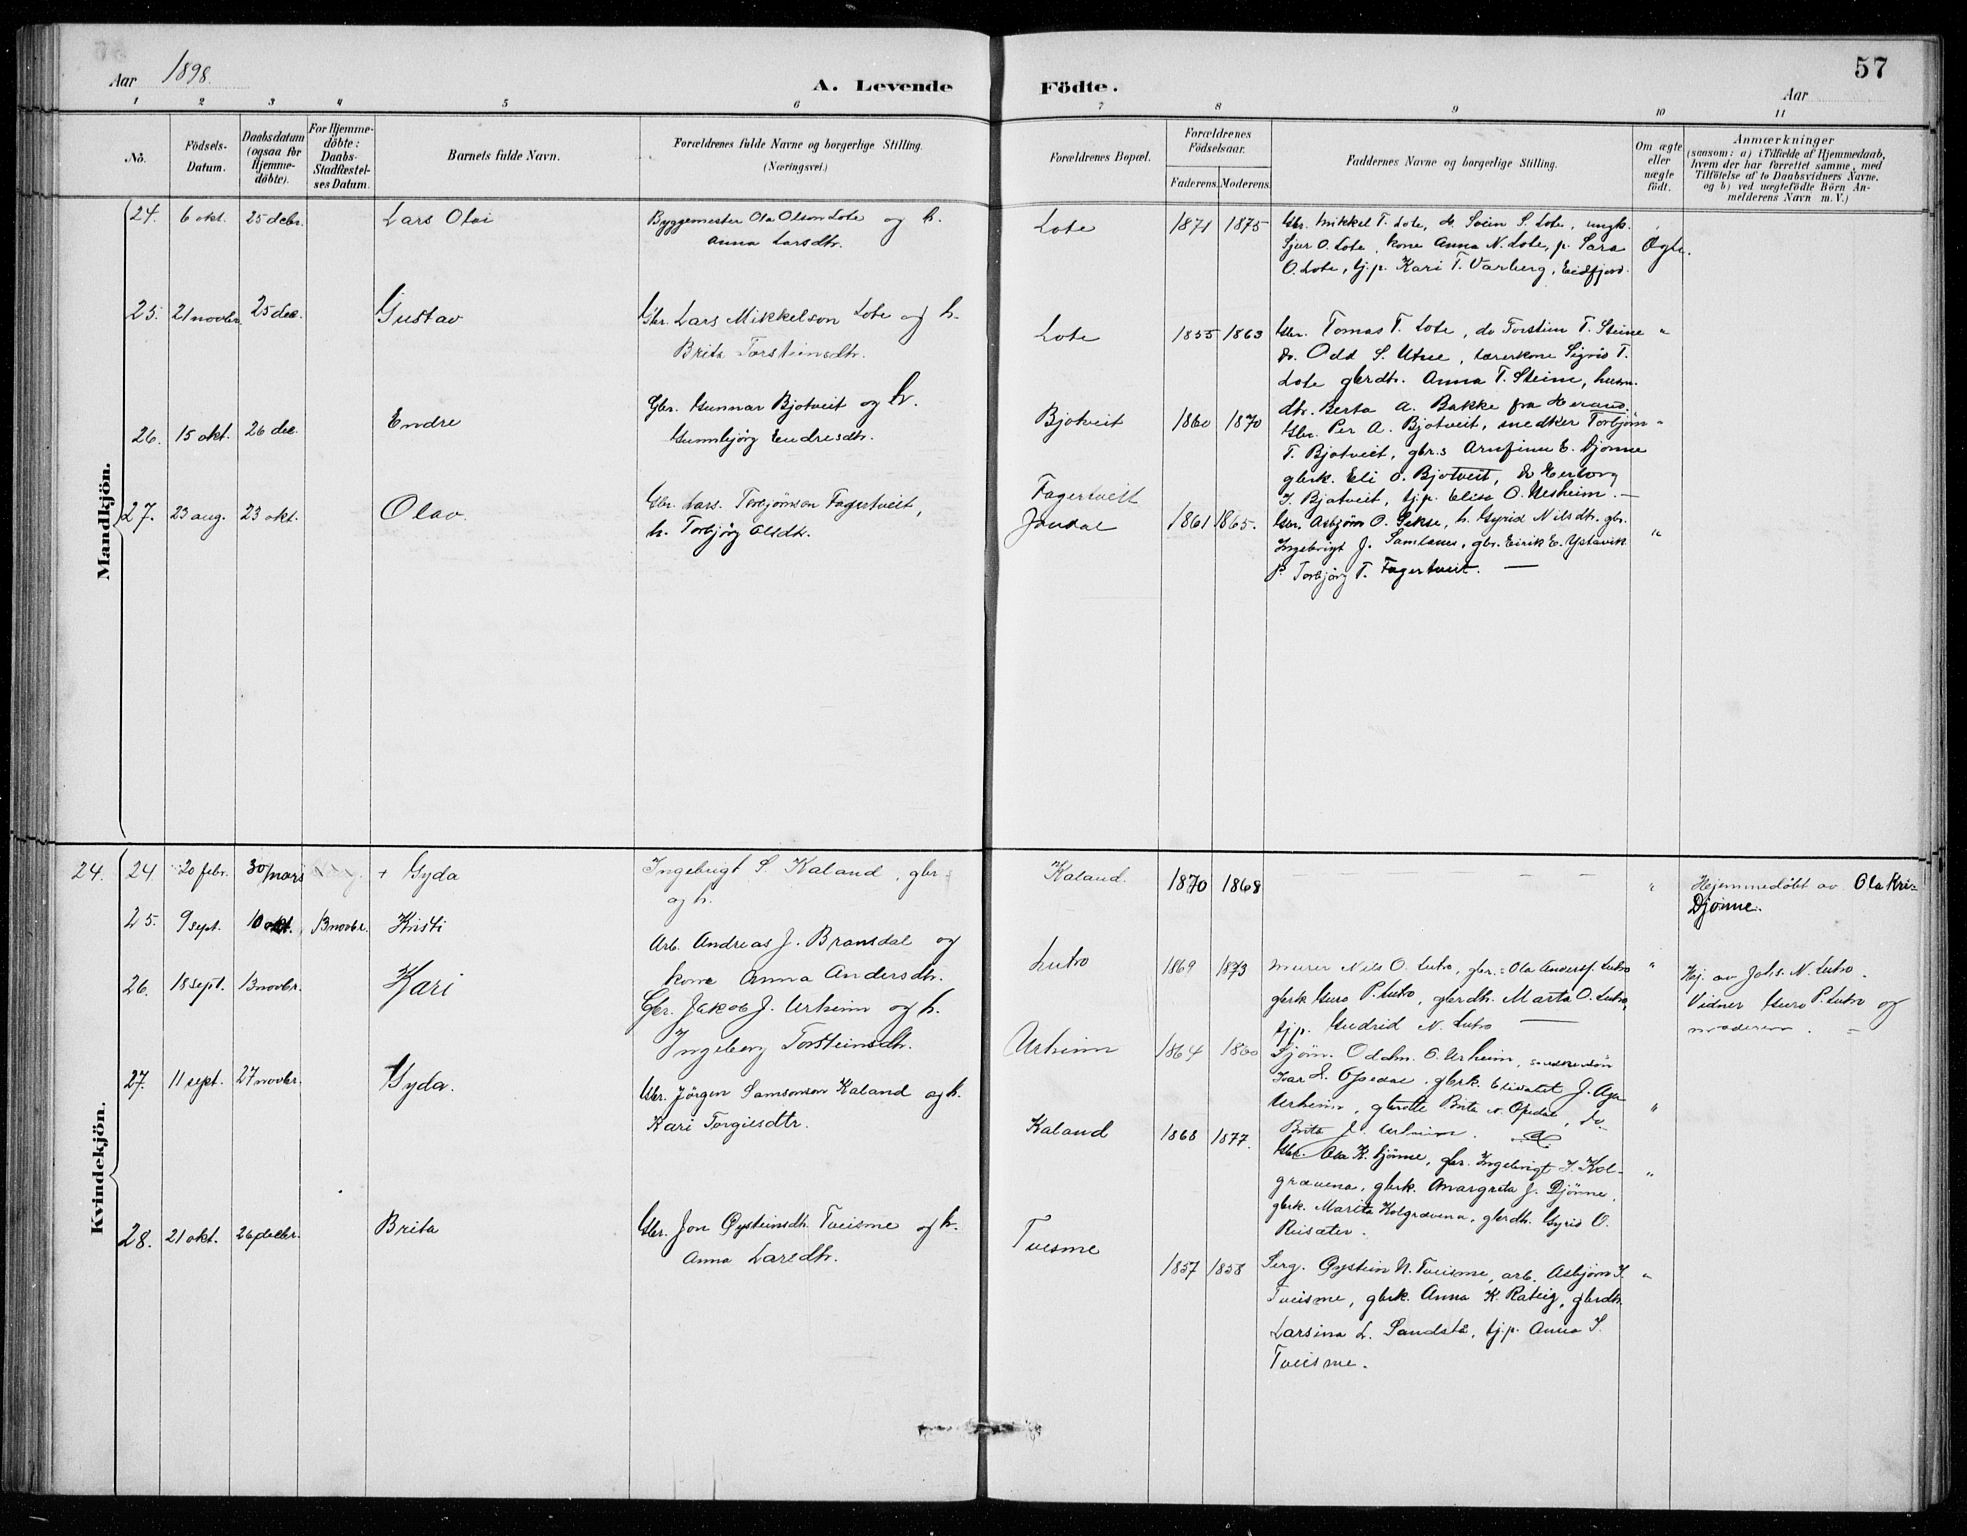 Aar 1898.
A. Levende
Födte.
57
Aar
1 2 3 4 5 6 7 8 9 10 11
No.
Födsels-
Datum.
Daabsdatum
(ogsaa for
Hjemme-
döbte).
For Hjemme-
döbte:
Daabs-
Stadfæstel-
ses Datum.
Barnets fulde Navn.
Forældrenes fulde Navne og borgerlige Stilling.
(Næringsvei.)
Forældrenes Bopæl.
Forældrenes
Födselsaar.
Faderens.
Moderens.
Faddernes Navne og borgerlige Stilling.
Om ægte
eller
uægte
födt.
Anmærkninger
(saasom: a) i Tilfælde af Hjemmedaab,
hvem der har forrettet samme, med
Tilföielse af to Daabsvidners Navne,
og b) ved uægtefödte Börn An-
melderens Navn m. V.)
Mandkjön.
24. 6 okt. 25 decbr. Lars Olai
Byggemester Ola Olson Lote og h.
Anna Larsdtr.
Lote 1871 1875
Gbr. Mikkel T. Lote, do Svein S. Lote, ungk.
Sjur O. Lote, kone Anna N. Lote, p. Sara
O. Lote, tj.p. Kari T. Varberg, Eidfjord.
Ægte.
25. 21 novbr. 25 dec. Gustav
Gbr. Lars Mikkelson Lote og h.
Brita Torsteinsdtr.
Lote 1855 1863
Gbr. Tomas T. Lote, do Torstein T. Steine
do. Odd S. Utne, lærerkone Sigrid T.
Lote gbrdtr. Anna T. Steine, husm.
dtr. Berta A. Bakke fra Herand.
"
26. 15 okt. 26 dec. Endre
Gbr. Gunnar Bjotveit og h.
Gunnbjörg Endresdtr.
Bjotveit 1860 1870
Gbr. Per A. Bjotveit, snedker Torbjörn
T. Bjotveit, gbr.s Arnfinn E. Djönne
gbrk. Eli O. Bjotveit, do Herborg
T. Bjotveit, tj.p. Elisa O. Nesheim. —
"
27. 23 aug. 23 okt. Olav
Gbr. Lars Torbjörnson Fagertveit,
h. Torbjörg Olsdtr.
Fagertveit
Jondal 1861 1865.
Gbr. Asbjörn O. Sekse, h. Gyrid Nilsdtr. gbr.
Ingebrigt J. Samland, gbr. Eirik E. Ystavik
p. Torbjörg T. Fagertveit. —
"
Kvindekjön.
24. 24. 20 febr. 30/mars + Gyda
Ingebrigt S. Kaland, gbr
og h.
Kaland. 1870 1868
— — — — —
"
Hjemmedöbt av Ola Kri-
Djönne.
25. 9 sept. 10 okt. 13 novbr. Kristi
Arb. Andreas J. Bransdal og
kone Anna Andersdtr.
Lutro 1869 1873
Murer Nils O. Lutro, gbr. Ola Anders. Lutro
gbrk Guro P. Lutro, gbrdtr. Marta O. Lutro,
tj.p. Gudrid N. Lutro —
"
Hj. av Johs. N. Lutro.
Vidner Guro P. Lutro og
moderen.
26. 18 sept. 13 novbr. Kari
Gbr. Jakob J. Urheim og h.
Ingeborg Torsteinsdtr.
Urheim 1864 1860
Oddm. O. Urheim,
Ivar J. Opedal, gbrk. Elisabet J. Aga
Urheim, Brita N. Opedal, do
Brita J. Urheim.
"
27. 11 sept. 27 novbr. Gyda.
Gbr. Jörgen Samsonson Kaland og h.
Kari Torgilsdtr.
Kaland 1868 1877.
Gbr. Ola K. Djönne, gbr. Ingebrigt T. Kol-
grævena, gbrk. Anargreta J. Djönne,
gbrk. Marita Kolgrævena, gbrdtr. Gyrid O.
Reisæter.
"
28. 21 okt. 26 decbr. Brita
Gbr. Jon Øysteinsdtr. Tveisme og h.
Anna Larsdtr.
Tveisme 1857 1858
Serg. Øystein N. Tveisme, arb. Asbjörn I.
Tveisme, gbrk. Anna K. Rateig, gbrdtr.
Larsina L. Sandstå, tj.p. Anna I.
Tveisme.
"